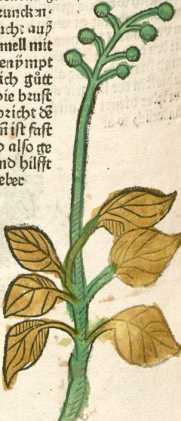 truncken
sucht auß
mell mit
nympt
ich gůtt
die brust
bricht dē
ist fast
also ge
nd hilfft
leber